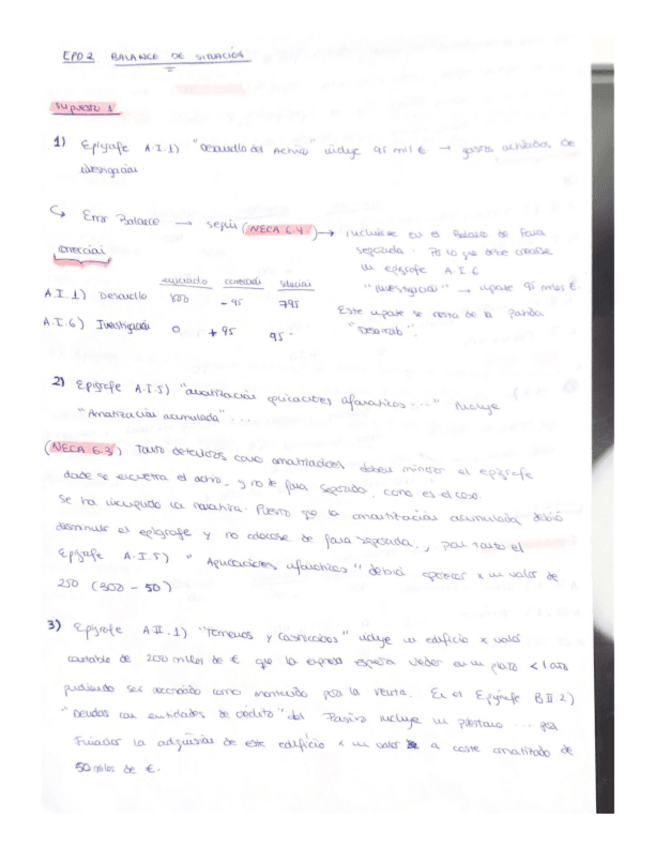 EPD 2 BALANCE DE SITUACIÓN
Supuesto 1
1) Epígrafe A.I.1) "Desarrollo del Activo" incluye 95 mil € → gastos activados de
investigación.
↳ Error Balance → según (NECA 6.4) → incluirse en el Balance de forma
corrección separada. Por lo que debe crearse
un epígrafe A.I.6
enunciado corrección solución "Investigación" → importe 95 miles €.
A.I.1) Desarrollo - 95 795 Este importe se resta de la partida
A.I.6) Investigación 0 + 95 95 "Desarrollo".
2) Epígrafe A.I.5) "amortización aplicaciones informáticas ..." incluye
"Amortización acumulada" ...
(NECA 6.3) Tanto deterioros como amortizaciones deben minorar el epígrafe
donde se encuentra el activo, y no de forma separada, como es el caso.
Se ha incumplido la normativa. Puesto que la amortización acumulada debió
disminuir el epígrafe y no colocarse de forma separada, por tanto el
Epígrafe A.I.5) "Aplicaciones informáticas" debió aparecer x un valor de
250 (300 - 50)
3) Epígrafe A.II.1) "Terrenos y Construcciones" incluye un edificio x valor
contable de 200 miles de € que la empresa espera vender en un plazo < 1 año
pudiendo ser reconocido como mantenido para la venta. En el Epígrafe B.II.2)
"Deudas con entidades de crédito" del Pasivo incluye un préstamo ... para
financiar la adquisición de este edificio x un valor a coste amortizado de
50 miles de €.